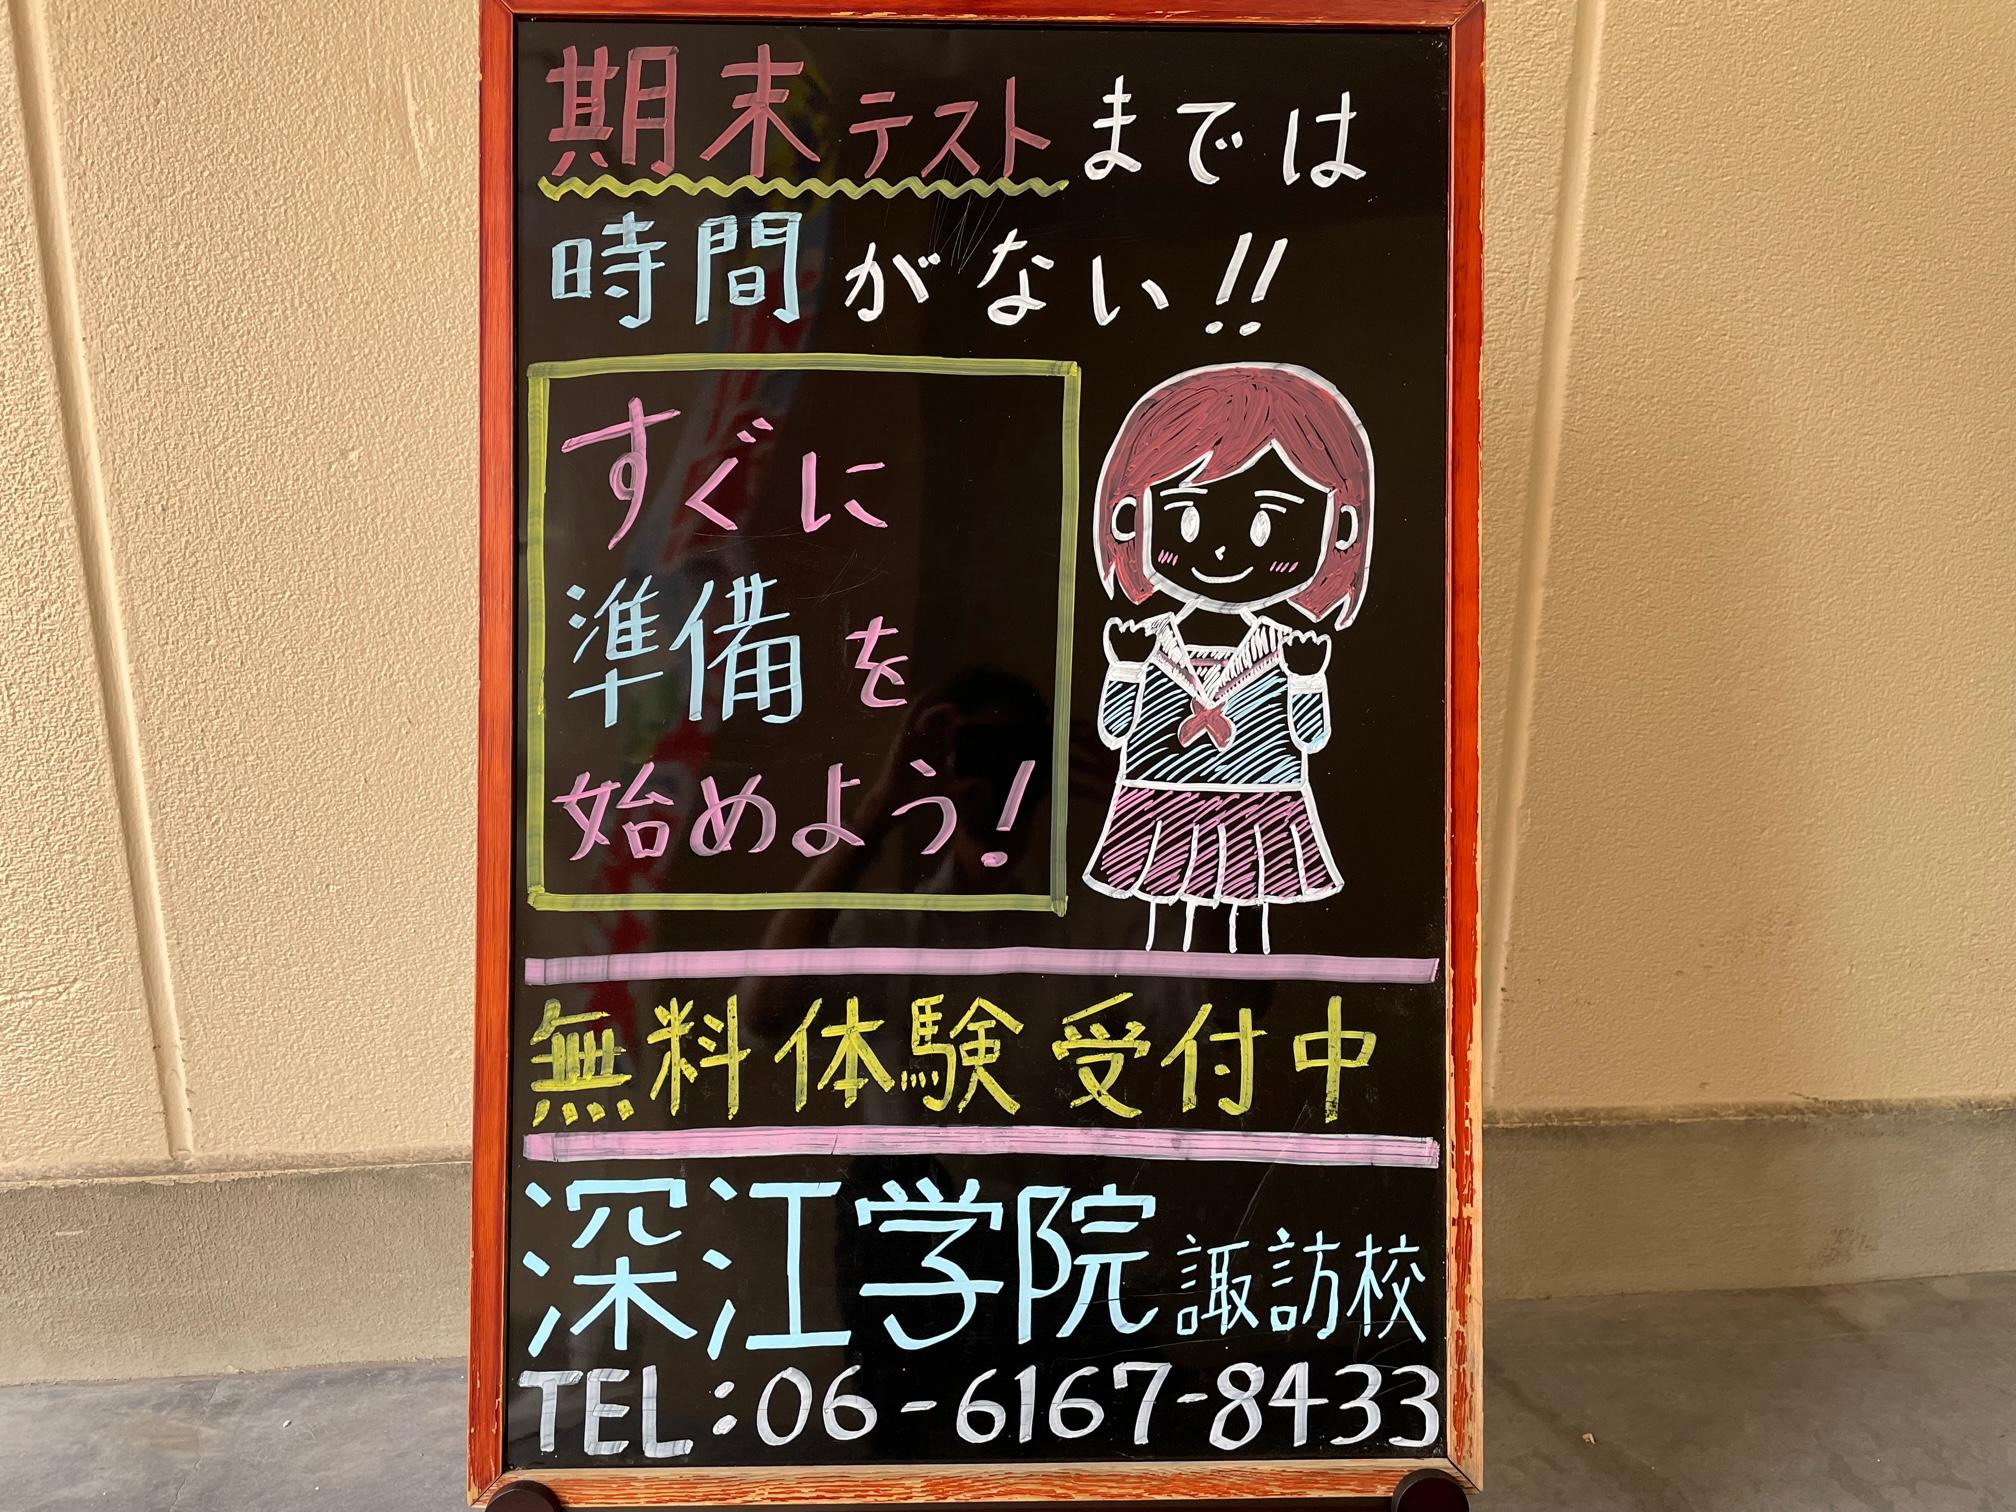 期末テストまでは
時間がない!!
すぐに
準備を
始めよう!
無料体験受付中
深江学院 諏訪校
TEL:06-6167-8433